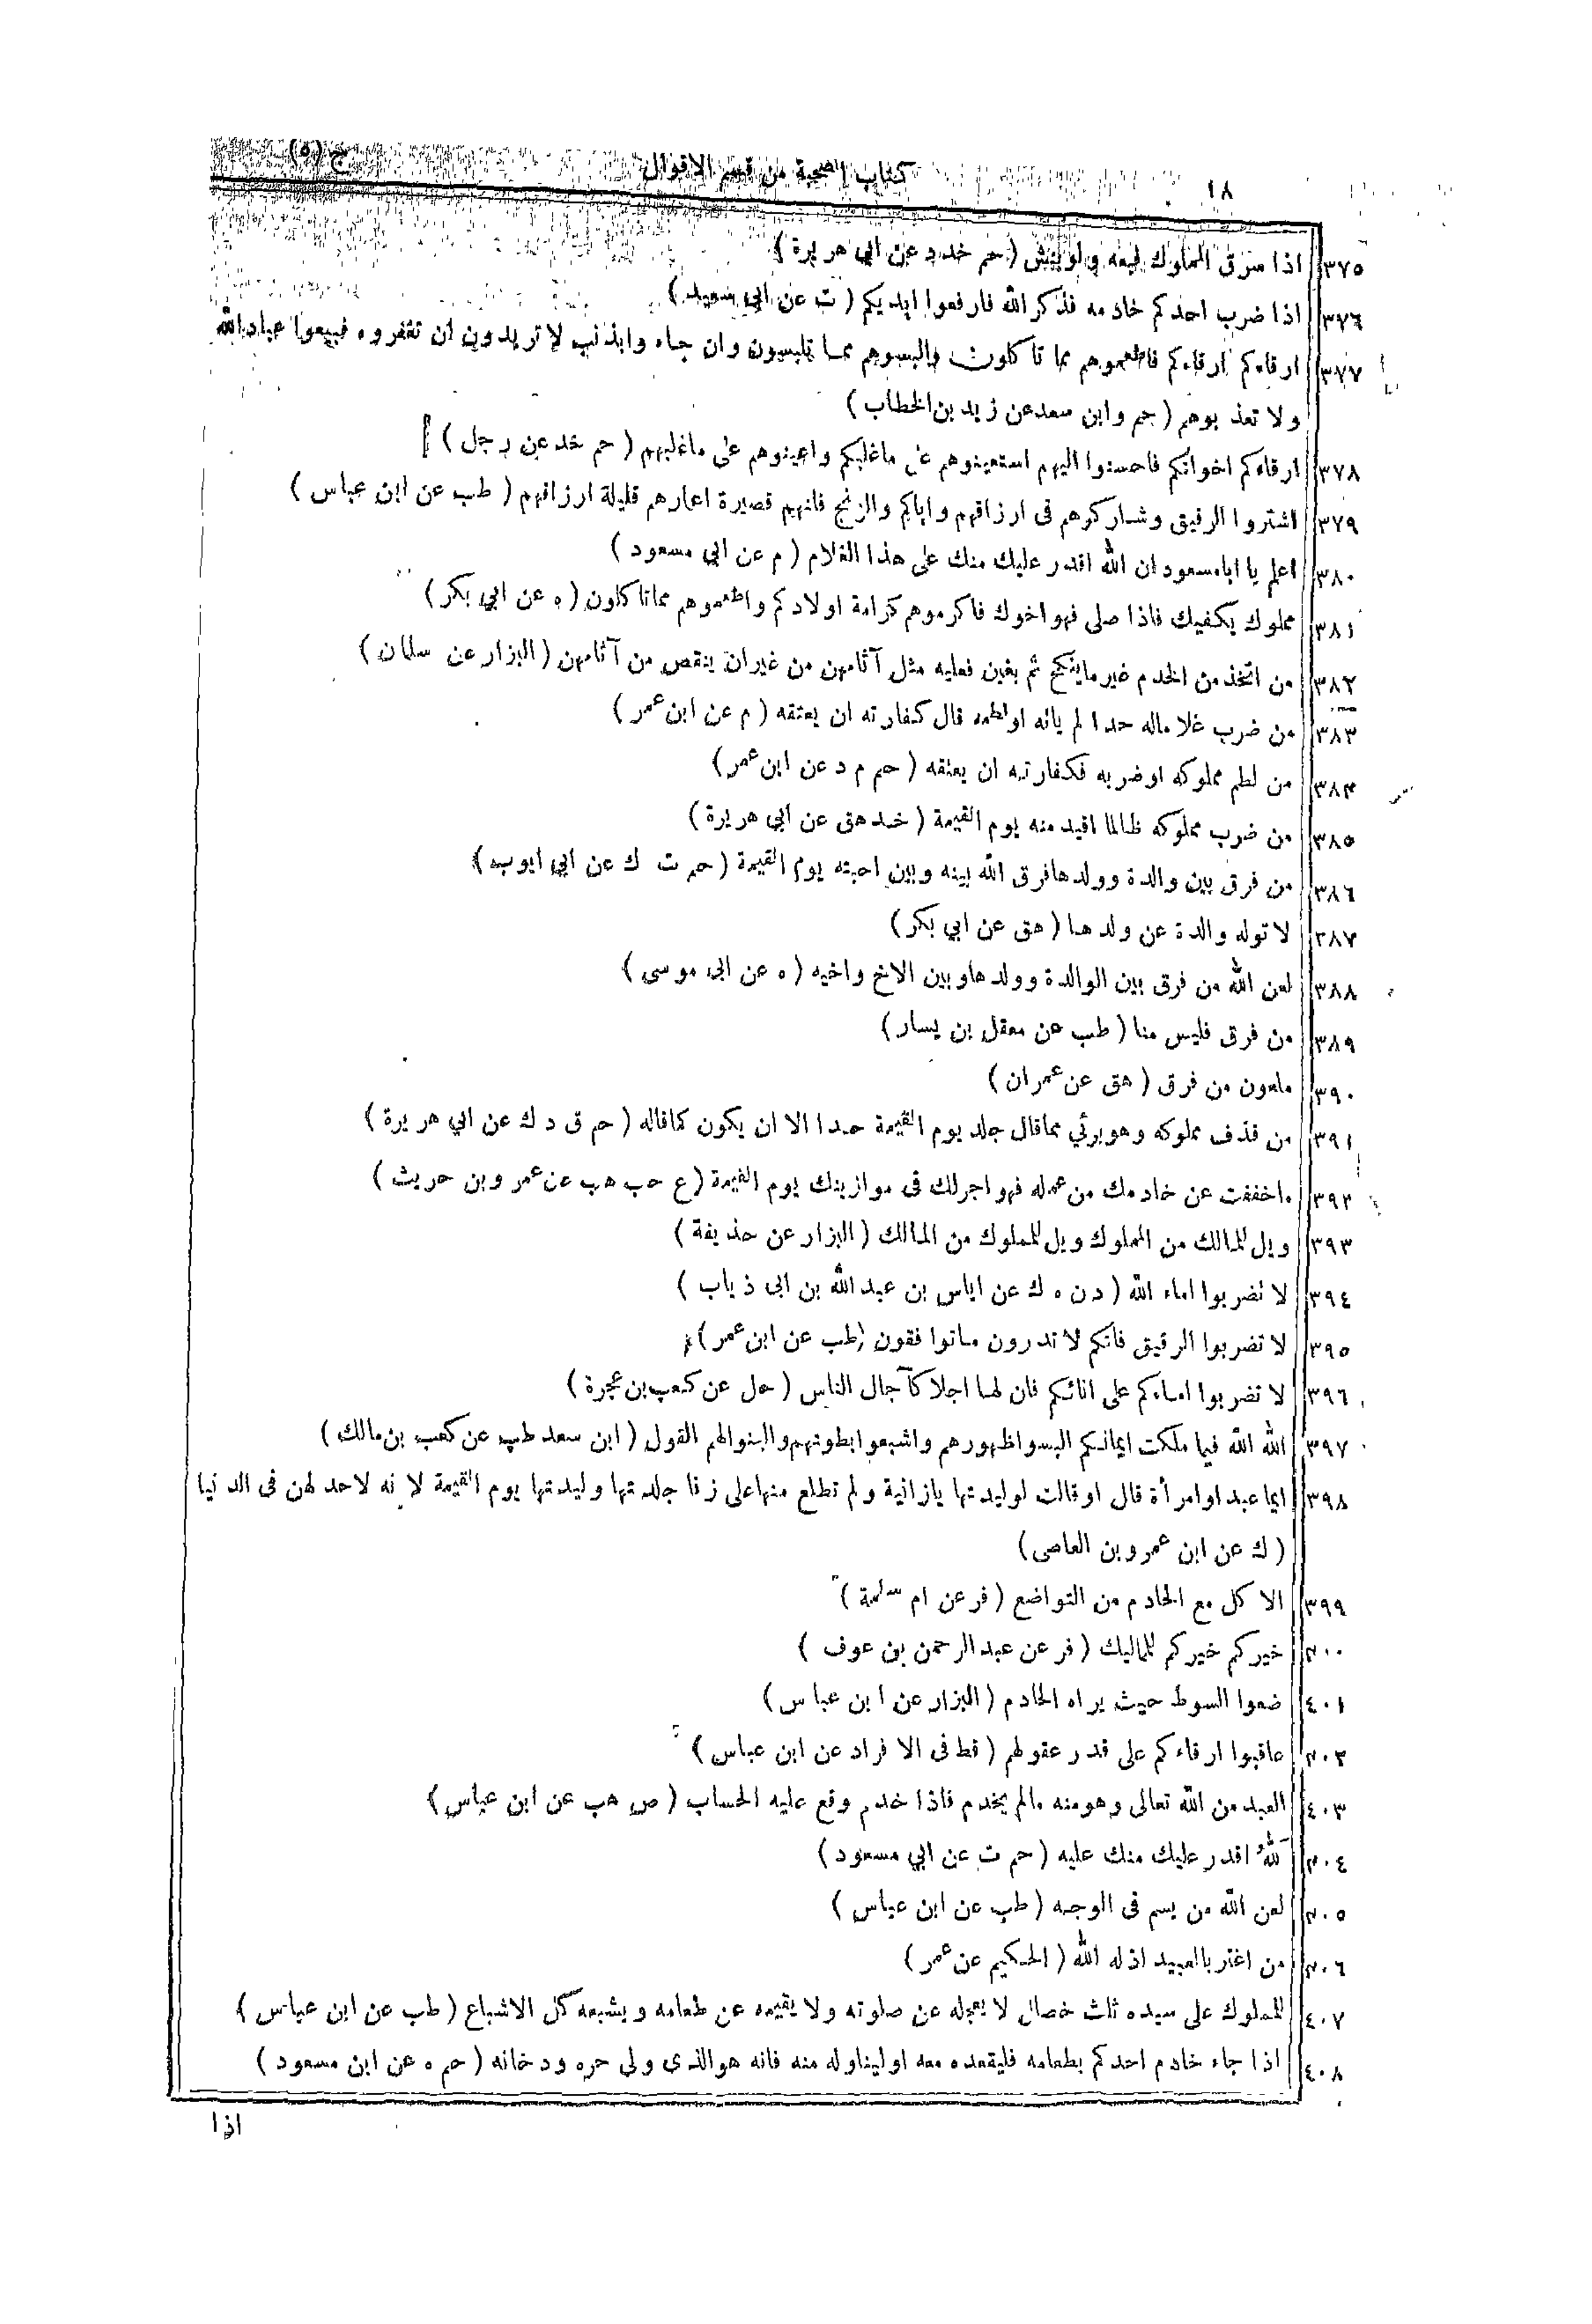 ١٨ كتاب الصحبة من قسم الاقوال ج (٥)
٣٧٥ اذا سرق المملوك فبعه ولو بنش (حم خد د عن ابي هريرة)
٣٧٦ اذا ضرب احدكم خادمه فذكر الله فارفعوا ايديكم (ت عن ابي سعيد)
٣٧٧ ارقاءكم ارقاءكم فاطعموهم مما تاكلون والبسوهم مما تلبسون وان جاءوا بذنب لا تريدون ان تغفروه فبيعوا عباد الله
ولا تعذبوهم (حم وابن سعد عن زيد بن الخطاب)
٣٧٨ ارقاءكم اخوانكم فاحسنوا اليهم استعينوهم على ماغلبكم واعينوهم على ماغلبهم (حم خد عن رجل)
٣٧٩ اشتروا الرقيق وشاركوهم فى ارزاقهم واياكم والزنج فانهم قصيرة اعمارهم قليلة ارزاقهم (طب عن ابن عباس)
٣٨٠ اعلم يا ابا مسعود ان الله اقدر عليك منك على هذا الغلام (م عن ابي مسعود)
٣٨١ مملوك يكفيك فاذا صلى فهو اخوك فاكرموهم كرامة اولادكم واطعموهم مما تاكلون (ه عن ابي بكر)
٣٨٢ من اتخذ من الخدم غير ماينكح ثم بغين فعليه مثل آثامهن من غير ان ينقص من آثامهن (البزار عن سلمان)
٣٨٣ من ضرب غلاما له حدا لم ياته او لطمه قال كفارته ان يعتقه (م عن ابن عمر)
٣٨٤ من لطم مملوكه او ضربه فكفارته ان يعتقه (حم م د عن ابن عمر)
٣٨٥ من ضرب مملوكه ظالما اقيد منه يوم القيمة (خد هق عن ابي هريرة)
٣٨٦ من فرق بين والدة وولدها فرق الله بينه وبين احبته يوم القيمة (حم ت ك عن ابي ايوب)
٣٨٧ لا توله والدة عن ولدها (هق عن ابي بكر)
٣٨٨ لعن الله من فرق بين الوالدة وولدها وبين الاخ واخيه (ه عن ابي موسى)
٣٨٩ من فرق فليس منا (طب عن معقل بن يسار)
٣٩٠ ملعون من فرق (هق عن عمران)
٣٩١ من قذف مملوكه وهو برئي مما قال جلد يوم القيمة حدا الا ان يكون كما قاله (حم ق د ك عن ابي هريرة)
٣٩٢ ماخففت عن خادمك من عمله فهو اجر لك فى موازينك يوم القيمة (ع حب هب عن عمر وبن حريث)
٣٩٣ ويل للمالك من المملوك ويل للمملوك من المالك (البزار عن حذيفة)
٣٩٤ لا تضربوا اماء الله (د ن ه ك عن اياس بن عبد الله بن ابي ذباب)
٣٩٥ لا تضربوا الرقيق فانكم لا تدرون ماتوافقون (طب عن ابن عمر)
٣٩٦ لا تضربوا اماءكم على انائكم فان لها اجلا كآجال الناس (حل عن كعب بن عجرة)
٣٩٧ الله الله فيما ملكت ايمانكم البسوا ظهورهم واشبعوا بطونهم والينوا لهم القول (ابن سعد طب عن كعب بن مالك)
٣٩٨ ايما عبد او امرأة قال او قالت لوليدتها يازانية ولم تطلع منها على زنا جلدتها وليدتها يوم القيمة لانه لاحد لهن فى الدنيا
(ك عن ابن عمر وبن العاصى)
٣٩٩ الاكل مع الخادم من التواضع (فر عن ام سلمة)
٤٠٠ خيركم خيركم للمماليك (فر عن عبد الرحمن بن عوف)
٤٠١ ضعوا السوط حيث يراه الخادم (البزار عن ابن عباس)
٤٠٢ عاقبوا ارقاءكم على قدر عقولهم (قط فى الافراد عن ابن عباس)
٤٠٣ العبد من الله تعالى وهو منه مالم يخدم فاذا خدم وقع عليه الحساب (ص هب عن ابن عباس)
٤٠٤ لَلّٰهُ اقدر عليك منك عليه (حم ت عن ابي مسعود)
٤٠٥ لعن الله من يسم فى الوجه (طب عن ابن عباس)
٤٠٦ من اغتر بالعبيد اذله الله (الحكيم عن عمر)
٤٠٧ للمملوك على سيده ثلث خصال لا يعجله عن صلوته ولا يقيمه عن طعامه ويشبعه كل الاشباع (طب عن ابن عباس)
٤٠٨ اذا جاء خادم احدكم بطعامه فليقعده معه او ليناوله منه فانه هو الذى ولى حره ودخانه (حم ه عن ابن مسعود)
اذا